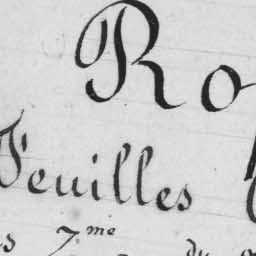 Ro
Feuilles
s 7.me du